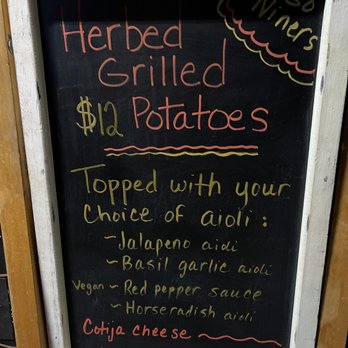 Go
Niners
Herbed
Grilled
$12 Potatoes
Topped with your
Choice of aioli:
~Jalapeno aioli
~Basil garlic aioli
Vegan ~Red pepper sauce
~Horseradish aioli
Cotija cheese ~